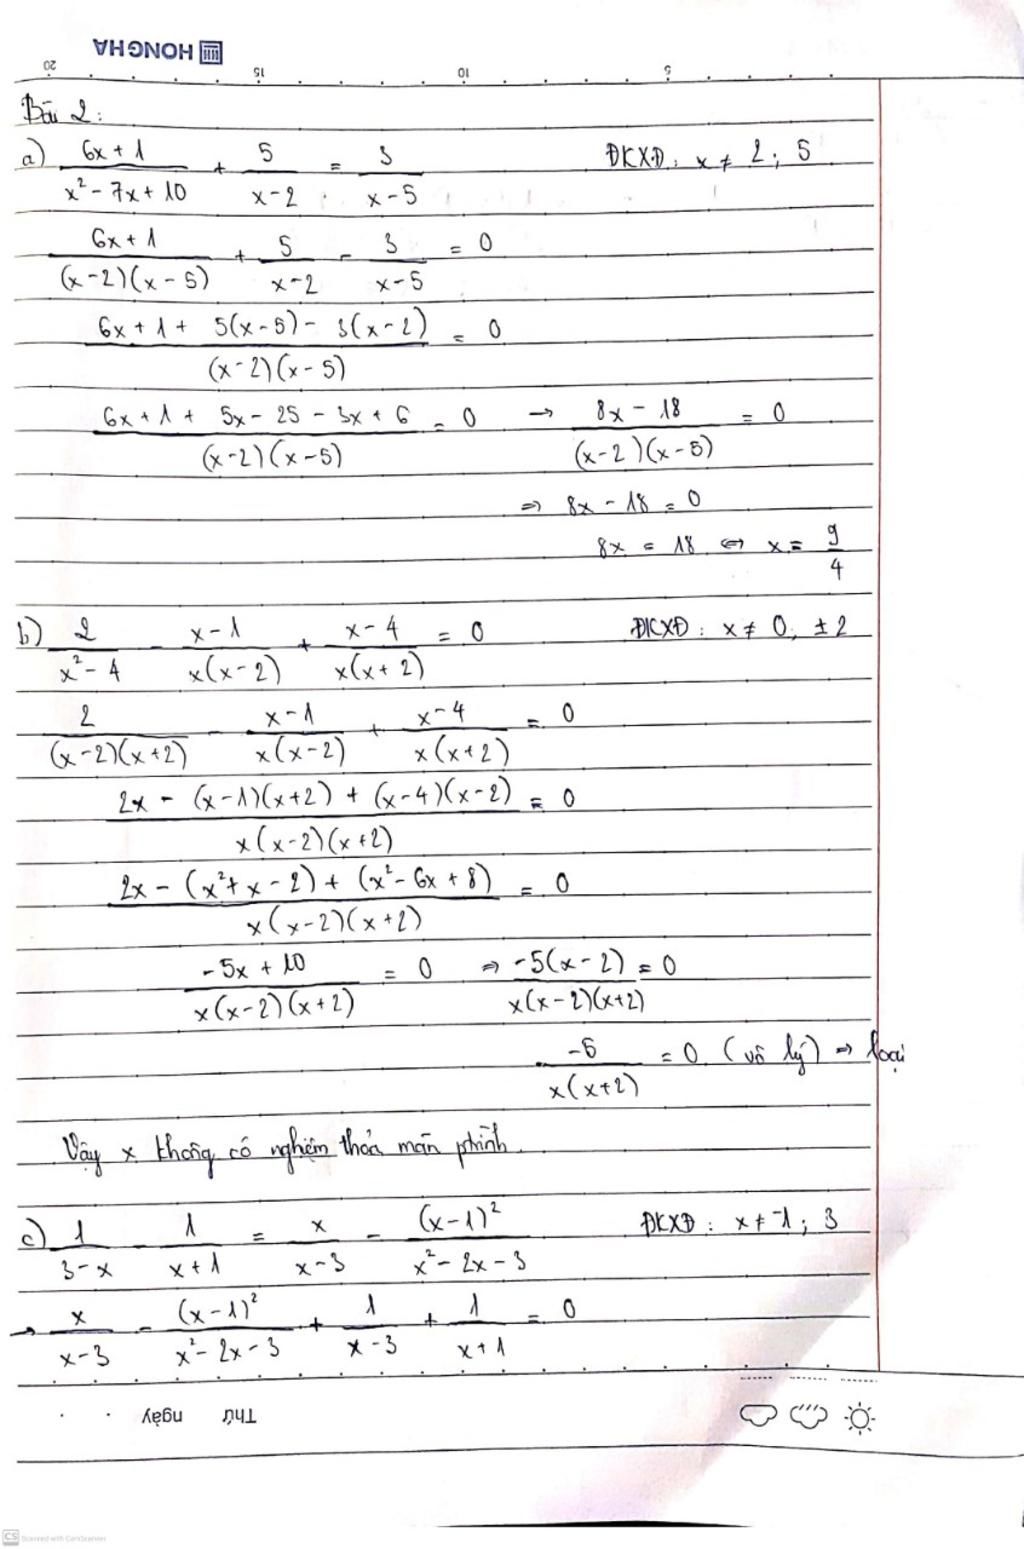 HONG HA
20 15 10 5
Bài 2:
a) (6x + 1)/(x² - 7x + 10) + 5/(x - 2) = 3/(x - 5) ĐKXĐ: x ≠ 2; 5
(6x + 1)/((x - 2)(x - 5)) + 5/(x - 2) - 3/(x - 5) = 0
(6x + 1 + 5(x - 5) - 3(x - 2))/((x - 2)(x - 5)) = 0
(6x + 1 + 5x - 25 - 3x + 6)/((x - 2)(x - 5)) = 0 → (8x - 18)/((x - 2)(x - 5)) = 0
⇒ 8x - 18 = 0
8x = 18 ⇔ x = 9/4
b) 2/(x² - 4) - (x - 1)/(x(x - 2)) + (x - 4)/(x(x + 2)) = 0 ĐKXĐ: x ≠ 0; ±2
2/((x - 2)(x + 2)) - (x - 1)/(x(x - 2)) + (x - 4)/(x(x + 2)) = 0
(2x - (x - 1)(x + 2) + (x - 4)(x - 2))/(x(x - 2)(x + 2)) = 0
(2x - (x² + x - 2) + (x² - 6x + 8))/(x(x - 2)(x + 2)) = 0
(-5x + 10)/(x(x - 2)(x + 2)) = 0 ⇒ (-5(x - 2))/(x(x - 2)(x + 2)) = 0
-5/(x(x + 2)) = 0 (vô lý) ⇒ loại
Vậy x không có nghiệm thỏa mãn phình.
c) 1/(3 - x) - 1/(x + 1) = x/(x - 3) - (x - 1)²/(x² - 2x - 3) ĐKXĐ: x ≠ -1; 3
→ x/(x - 3) - (x - 1)²/(x² - 2x - 3) + 1/(x - 3) + 1/(x + 1) = 0
Thứ ngày
CS Scanned with CamScanner